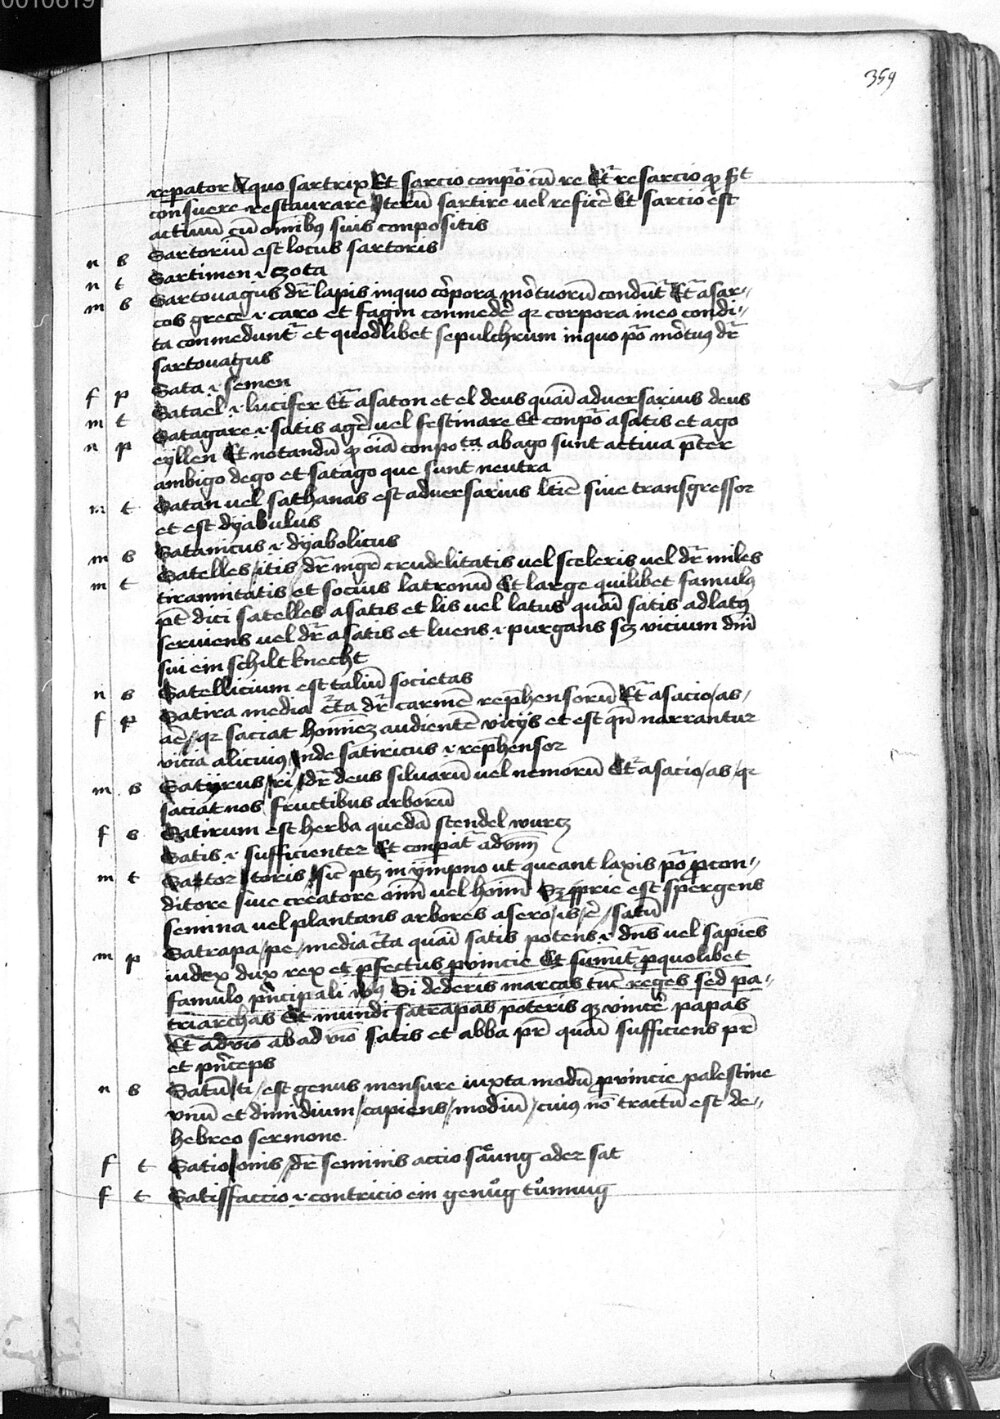 00106191
359
repator A quo sartrix Et sarcio conpōr cū re Et̄ resarcio qꝫ est
consuere restaurare Iterū sartire vel reficē Et sarcio est
actiuū cū omībꝰ suis conpositis
n s Sartoriū est locus sartoris
n t Sartimen ⁊ czota
m s Sartouagus dr̄ lapis inquo cōrpora mōrtuorū condunt̄ Et̄ asar//
cos grece ⁊ caro et fagin conmedē qꝛ corpora ineo condi//
ta conmedunt̄ et quodlibet sepulchrum inquo pō mōrtuꝰ dr̄
sartouagus
f p Sata ⁊ semen
m t Satael ⁊ lucifer Et̄ asaton et el deus quāī aduersarius deus
n p Satagare ⁊ satis agē vel festinare Et conpō asatis et ago
eyllen Et notandū qꝫ oīa conpo ta abago sunt actiua pter
ambigo dego et satago que sunt neutra
m t Satan vel sathanas est aduersarius ltīe siue transgressor
et est dyabulus
m s Satanicus ⁊ dyabolicus
m t Satelles /itis/ dr̄ mgr̄ crudelitatis vel sceleris vel dr̄ miles
tirannitatis et socius latronū Et large quilibet famulꝰ
pt̄ dici satelles asatis et lis vel latus quāī satis adlatꝰ
seruiens vel dr̄ asatis et luens ⁊ purgans scꝫ vicium dnī
sui ein schilt knecht
n s Satellicium est taliū societas
f p Satira media cr̄ta dr̄ carmē reprehensorū Et̄ asacio /as/
aē/ qꝛ saciat homīez audientē vicijs et est qn̄ narrantur
vicia alicuiꝰ Inde satiricus ⁊ reprehensor
m s Satyrus /ri/ dr̄ deus siluarū vel nemorū Et̄ asacio /as/ qꝛ
saciat nos fructibus arborū
f s Satirum est herba quedā stendel wurcz
Satis ⁊ sufficienter Et conpat̄ adviī
m t Sator /toris/ sic ptꝫ in ympno ut queant laxis pō pcon//
ditore siue creatore oīm vel hoīm Sꝫ pprie est spergens
semina vel plantans arbores asero /is/ ē /satū
m p Satrapa /pe/ media cr̄ta quāī satis potens ⁊ dn̄s vel sapiēs
iudex dux rex et pfectus prouincie Et sumit̄ pquolibet
famulo prīncipali vsꝰ Si dederis marcas tuē reges sed pa//
triarchas Et mundi satrapas poteris qꝫ vincē papas
Et̄ adviō ab ad viō satis et abba pr̄ quāī sufficiens pr̄
et prīnceps
n s Satū /ti/ est genus mensure iuxta modū prouincie palestine
vnū et dimidium /capiens/ modiū /cuiꝰ nō tractū est de//
hebreo sermone
f t Satio /onis/ dr̄ seminis accio saung oder sat
f t Satisfaccio ⁊ contricio ein genūg tūnnug